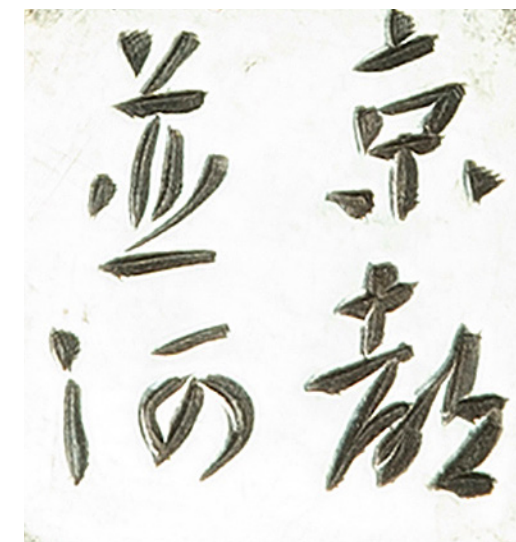 京都
並河